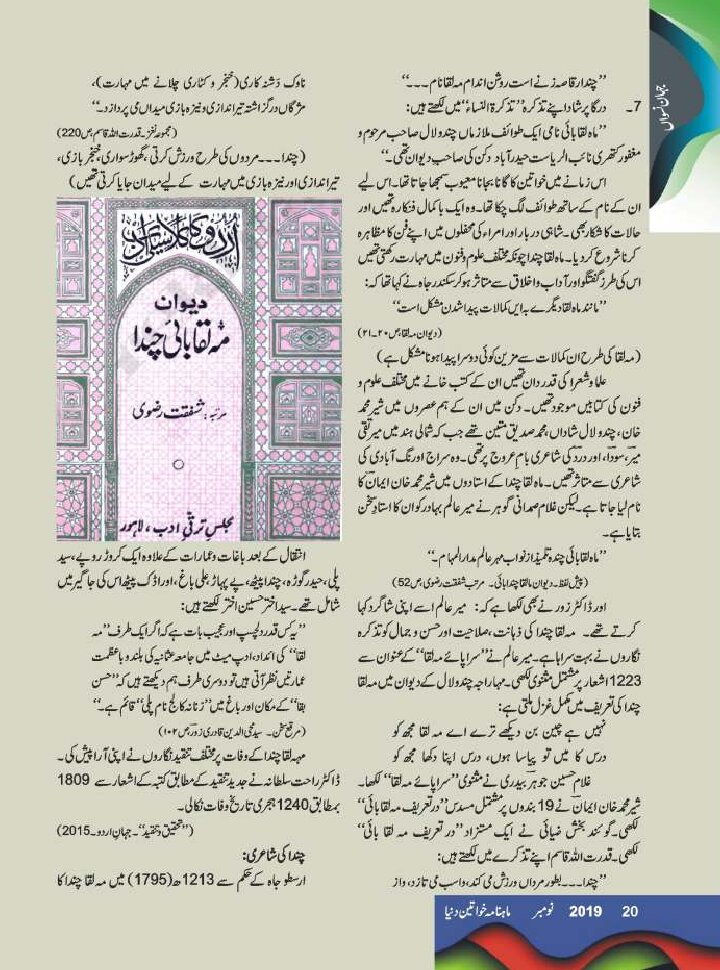 جہانِ نسواں
"چندار قاصہ زنے است روشن اندام مہ لقا نام ۔۔۔"
7۔ درگا پرشاد اپنے تذکرہ "تذکرۃ النساء" میں لکھتے ہیں:
"ماہ لقا بائی نامی ایک طوائف ملازماں چندو لال صاحب مرحوم و
مغفور کتھری نائب الریاست حیدرآباد دکن کی صاحب دیوان تھی۔"
اس زمانے میں خواتین کا گانا بجانا معیوب سمجھا جاتا تھا۔ اس لیے
ان کے نام کے ساتھ طوائف لگ چکا تھا۔ وہ ایک باکمال فنکارہ تھیں اور
حالات کا شکار بھی۔ شاہی دربار اور امراء کی محفلوں میں اپنے فن کا مظاہرہ
کرنا شروع کر دیا۔ ماہ لقا چندا چونکہ مختلف علوم و فنون میں مہارت رکھتی تھیں
اس کی طرز گفتگو اور آداب و اخلاق سے متاثر ہو کر سکندر جاہ نے کہا تھا کہ:
"مانند ماہ لقا دیگرے بہ ایں کمالات پیدا شدن مشکل است"
(دیوان مہ لقا ص ۲۰۔۲۱)
(مہ لقا کی طرح ان کمالات سے مزین کوئی دوسرا پیدا ہونا مشکل ہے)
علماء و شعراء کی قدردان تھیں ان کے کتب خانے میں مختلف علوم و
فنون کی کتابیں موجود تھیں۔ دکن میں ان کے ہم عصروں میں شیر محمد
خان، چندو لال شاداں، محمد صدیق متین تھے جب کہ شمالی ہند میں میر تقی
میر، سودا، اور درد کی شاعری بامِ عروج پر تھی۔ وہ سراج اورنگ آبادی کی
شاعری سے متاثر تھیں۔ ماہ لقا چندا کے استادوں میں شیر محمد خان ایمان کا
نام لیا جاتا ہے۔ لیکن غلام صمدانی گوہر نے میر عالم بہادر کو ان کا استادِ سخن
بتایا ہے۔
"ماہ لقا بائی چندہ تلمیذ از نواب مہر عالم مدار المہام۔"
(پیش لفظ۔ دیوان ماہ لقا چندا بائی۔ مرتب شفقت رضوی، ص 52)
اور ڈاکٹر زور نے بھی لکھا ہے کہ: میر عالم اسے اپنی شاگرد کہا
کرتے تھے۔ مہ لقا چندا کی ذہانت، صلاحیت اور حسن و جمال کو تذکرہ
نگاروں نے بہت سراہا ہے۔ میر عالم نے "سراپائے مہ لقا" کے عنوان سے
1223 اشعار پر مشتمل مثنوی لکھی۔ مہاراجہ چندو لال کے دیوان میں مہ لقا
چندا کی تعریف میں مکمل غزل ملتی ہے:
نہیں ہے چین بن دیکھے ترے اے مہ لقا مجھ کو
درس کا میں تو پیاسا ہوں، درس اپنا دکھا مجھ کو
غلام حسین جوہر بیدری نے مثنوی "سراپائے مہ لقا" لکھا۔
شیر محمد خان ایمان نے 19 بندوں پر مشتمل مسدس "در تعریف مہ لقا بائی"
لکھی۔ گوئند بخش ضیائی نے ایک مستزاد "در تعریف مہ لقا بائی"
لکھی۔ قدرت اللہ قاسم اپنے تذکرے میں لکھتے ہیں:
"چندا ۔۔۔ بطور مرداں ورزش می کند، واسپ می تازد، واز
ناوک دشنہ کاری (خنجر و کٹاری چلانے میں مہارت)،
مژگاں درگزاشتہ تیراندازی و نیزہ بازی میداں می پردازد۔"
(مجموعہ نغز۔ قدرت اللہ قاسم، ص 220)
(چندا ۔۔۔ مردوں کی طرح ورزش کرتی، گھوڑ سواری، خنجر بازی،
تیر اندازی اور نیزہ بازی میں مہارت کے لیے میدان جایا کرتی تھیں)
اُردو کا کلاسیکی ادب
دیوان
مہ لقا بائی چندا
مرتبہ: شفقت رضوی
مجلس ترقی ادب، لاہور
انتقال کے بعد باغات و عمارات کے علاوہ ایک کروڑ روپے، سید
پلی، حیدر گوڑہ، چندا پیٹھ، پے پہاڑ علی باغ، اور اڈک پیٹھ اس کی جاگیر میں
شامل تھے۔ سید اختر حسین اختر لکھتے ہیں:
"یہ کس قدر دلچسپ اور عجیب بات ہے کہ اگر ایک طرف "مہ
لقا" کی انداد، ادپ میٹ میں جامعہ عثمانیہ کی بلند و باعظمت
عمارتیں نظر آتی ہیں تو دوسری طرف ہم دیکھتے ہیں کہ "حسن
لقا" کے مکان اور باغ میں "زنانہ کالج نام پلی" قائم ہے۔"
(مرقع سخن۔ سید محی الدین قادری زور، ص ۱۰۲)
مہہ لقا چندا کے وفات پر مختلف تنقید نگاروں نے اپنی آرا پیش کی۔
ڈاکٹر راحت سلطانہ نے جدید تنقید کے مطابق کتبہ کے اشعار سے 1809
بمطابق 1240 ہجری تاریخ وفات نکالی۔
("تحقیق و تنقید"۔ جہانِ اردو۔ 2015)
چندا کی شاعری:
ارسطو جاہ کے حکم سے 1213ھ (1795) میں مہ لقا چندا کا
ماہنامہ خواتین دنیا نومبر 2019 20